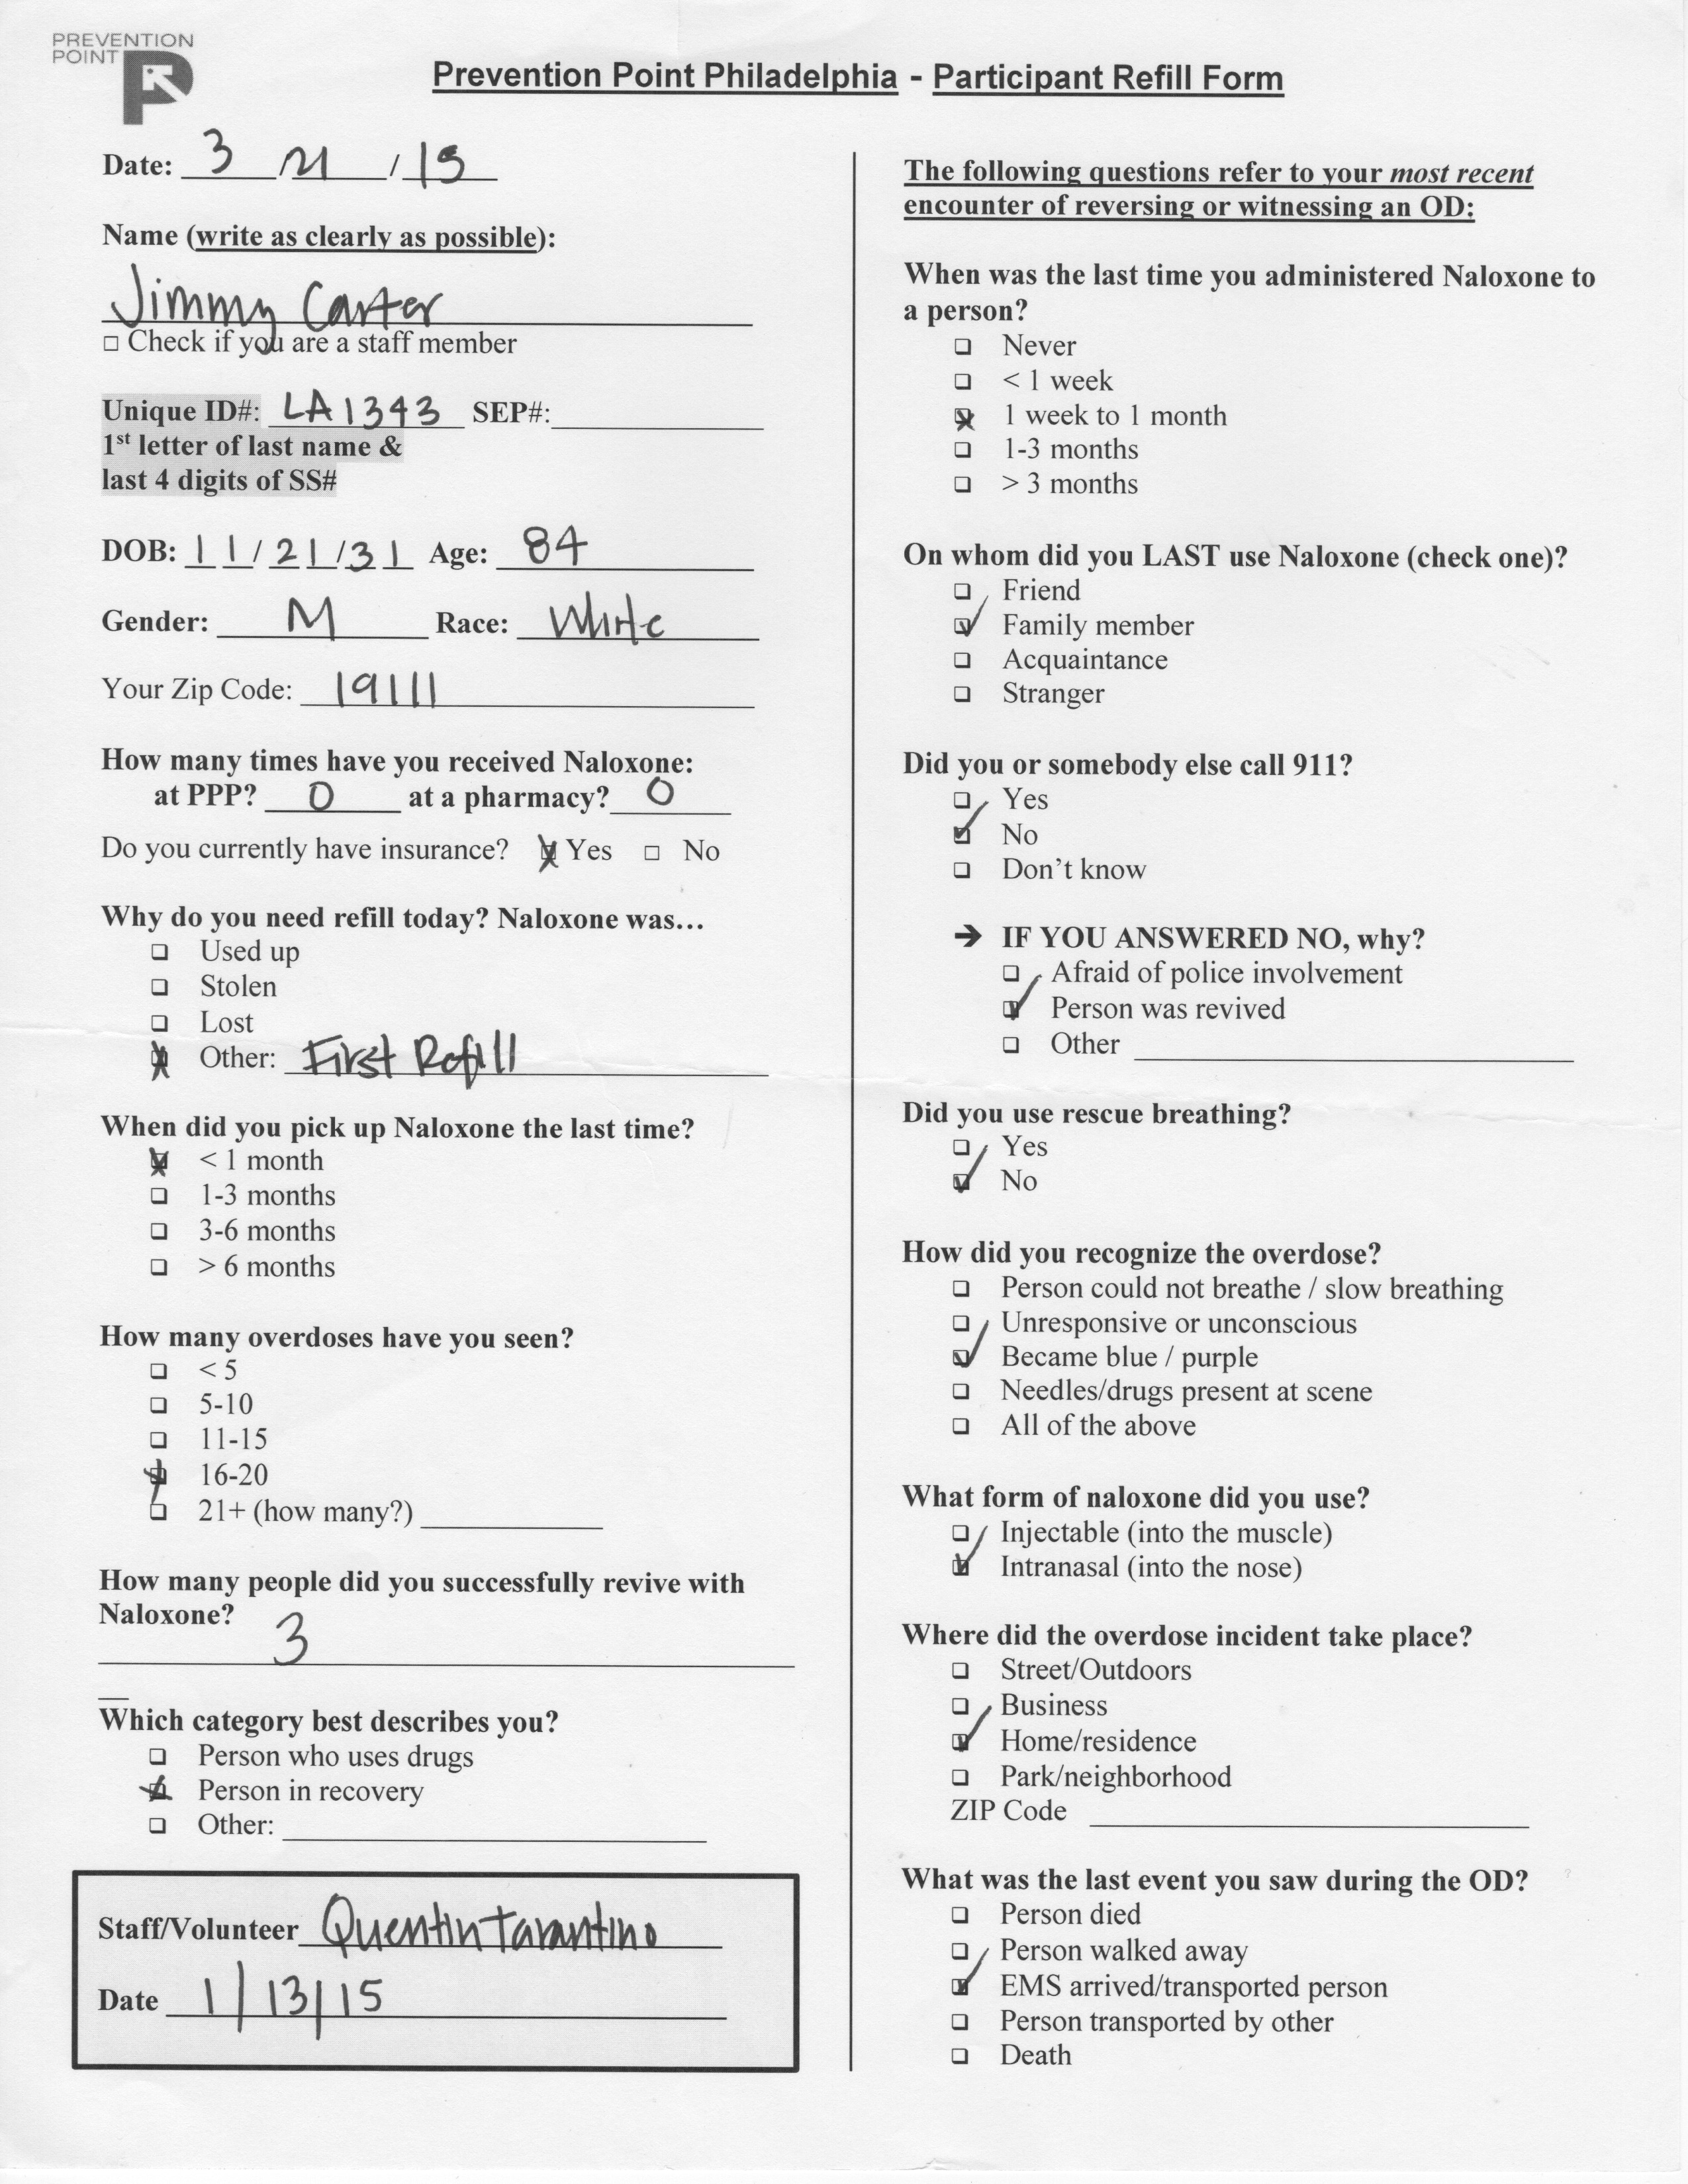 PREVENTION
POINT
Prevention Point Philadelphia - Participant Refill Form
Date: 3 / 21 / 15
Name (write as clearly as possible):
Jimmy Carter
□ Check if you are a staff member
Unique ID#: LA1343 SEP#:
1st letter of last name &
last 4 digits of SS#
DOB: 11/21/31 Age: 84
Gender: M Race: White
Your Zip Code: 19111
How many times have you received Naloxone:
at PPP? 0 at a pharmacy? 0
Do you currently have insurance? ☒ Yes □ No
Why do you need refill today? Naloxone was…
❑ Used up
❑ Stolen
❑ Lost
☒ Other: First Refill
When did you pick up Naloxone the last time?
☒ < 1 month
❑ 1-3 months
❑ 3-6 months
❑ > 6 months
How many overdoses have you seen?
❑ < 5
❑ 5-10
❑ 11-15
☒ 16-20
❑ 21+ (how many?)
How many people did you successfully revive with
Naloxone?
3
Which category best describes you?
❑ Person who uses drugs
☒ Person in recovery
❑ Other:
Staff/Volunteer Quentin Tarantino
Date 1/13/15
The following questions refer to your most recent
encounter of reversing or witnessing an OD:
When was the last time you administered Naloxone to
a person?
❑ Never
❑ < 1 week
☒ 1 week to 1 month
❑ 1-3 months
❑ > 3 months
On whom did you LAST use Naloxone (check one)?
❑ Friend
☑ Family member
❑ Acquaintance
❑ Stranger
Did you or somebody else call 911?
❑ Yes
☑ No
❑ Don't know
➔ IF YOU ANSWERED NO, why?
❑ Afraid of police involvement
☑ Person was revived
❑ Other
Did you use rescue breathing?
❑ Yes
☑ No
How did you recognize the overdose?
❑ Person could not breathe / slow breathing
❑ Unresponsive or unconscious
☑ Became blue / purple
❑ Needles/drugs present at scene
❑ All of the above
What form of naloxone did you use?
❑ Injectable (into the muscle)
☑ Intranasal (into the nose)
Where did the overdose incident take place?
❑ Street/Outdoors
❑ Business
☑ Home/residence
❑ Park/neighborhood
ZIP Code
What was the last event you saw during the OD?
❑ Person died
❑ Person walked away
☑ EMS arrived/transported person
❑ Person transported by other
❑ Death